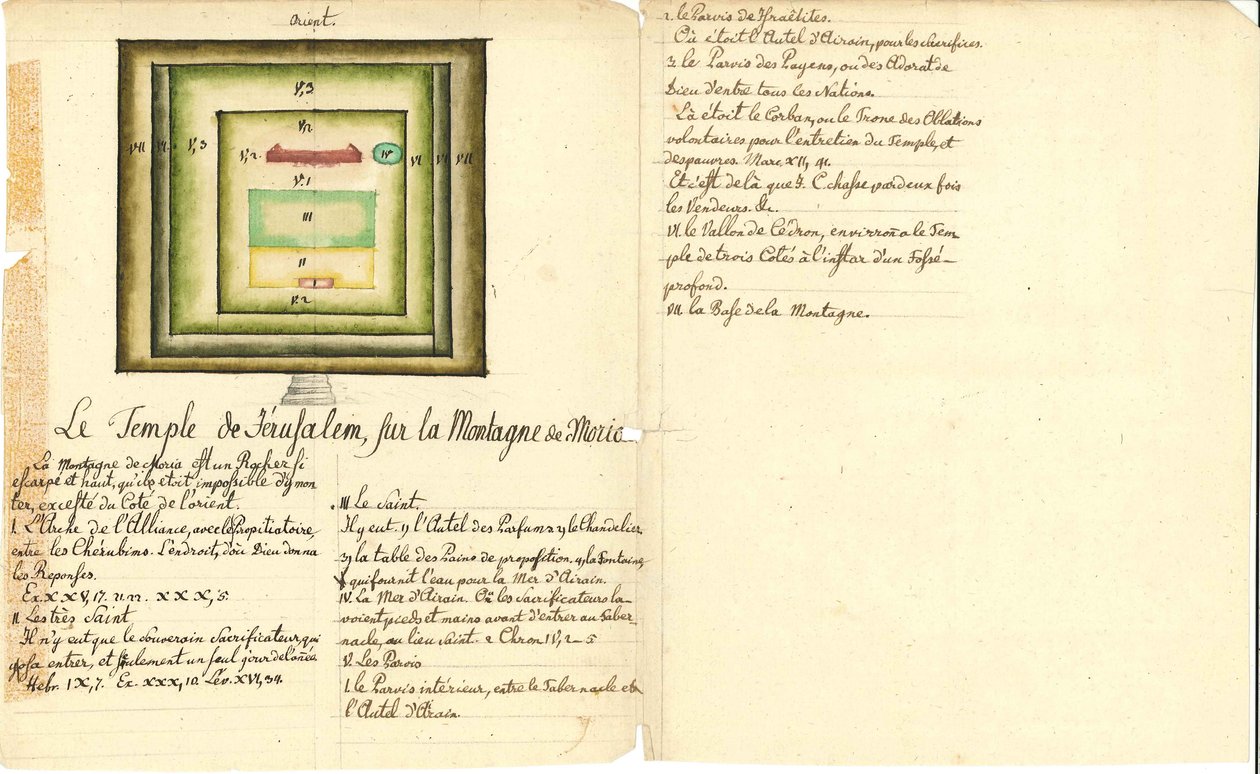 Orient.
V,3
V,2
VII VI V,3 V,2. IV VI VI VII
V.1
III
II
I
V.2
Le Temple de Jérusalem, sur la Montagne de Moria
La Montagne de Moria est un Rocher si
escarpé et haut, qu'ils etoit impossible d'ymon
ter, excepté du Coté de l'orient.
I. L'Arche de l'Alliance, avec le Propitiatoire,
entre les Cherubins. L'endroit, d'où Dieu donna
les Reponses.
Ex. XXV, 17. 21. 22. XXX, 5.
II Les très Saint
Il n'y eut que le souverain Sacrificateur qui
y osa entrer, et seulement un seul jour de l'année
Hebr. IX, 7. Ex. XXX, 10. Lév. XVI, 34.
III Le Saint.
Il y eut. 1) l'Autel des Parfums 2) le Chandelier
3) la table des Pains de proposition. 4) la Fontaine
qui fournit l'eau pour la Mer d'Airain.
IV. La Mer d'Airain. Où les Sacrificateurs la-
voient pieds et mains avant d'entrer au Taber-
nacle, au lieu Saint. 2 Chron IV, 2-5
V. Les Parvis
1. le Parvis intérieur, entre le Tabernacle et
l'Autel d'Airain.
2. le Parvis de Israëlites.
Où etoit l'Autel d'Airain, pour les sacrifices.
3. le Parvis des Payens, ou des Adorat de
Dieu d'entre tous les Nations.
Là étoit le Corban, ou le Trone des Oblations
volontaires pour l'entretien du Temple, et
des pauvres. Marc. XII, 41.
Et c'est de là que J. C. chasse par deux fois
les Vendeurs. &c.
VI. le Vallon de Cédron, environna le Tem-
ple de trois Cotés à l'instar d'un Fossé-
profond.
VII. la Base de la Montagne.